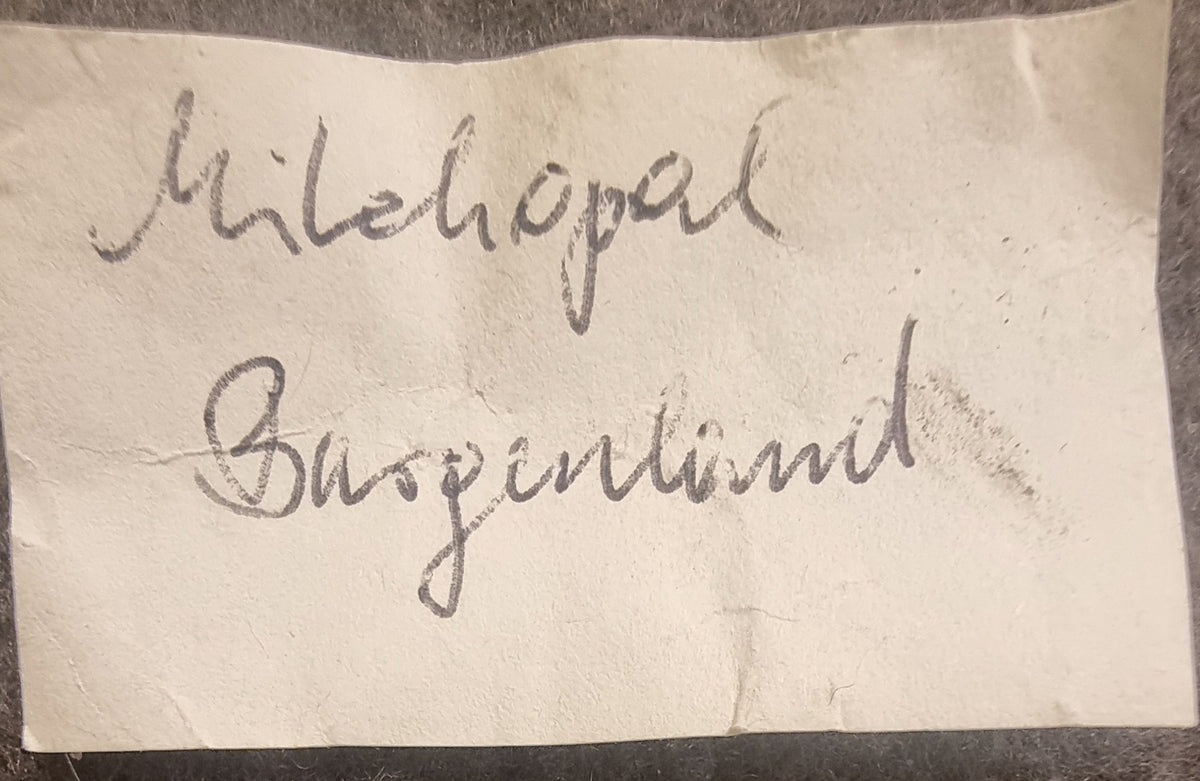 Milchopal
Burgenland